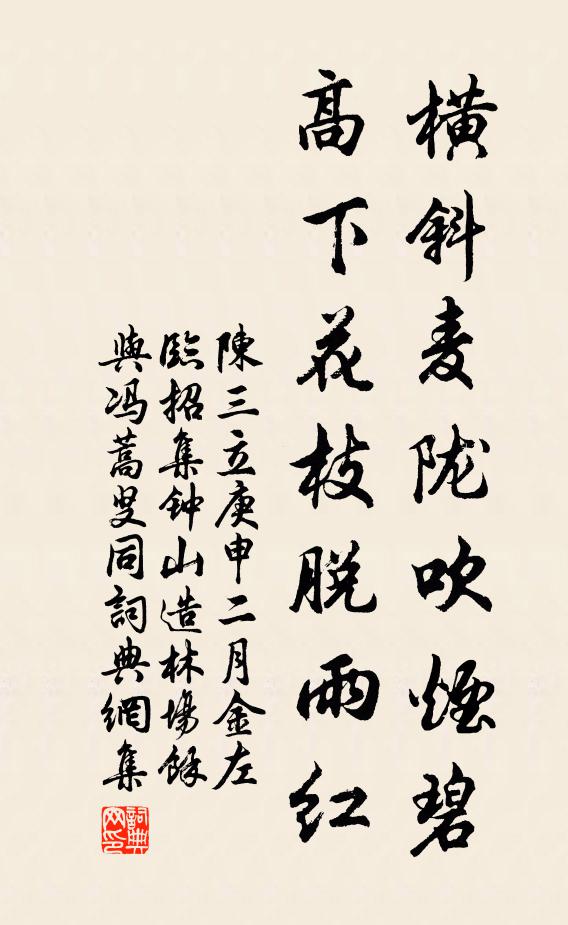 横斜麦陇吹烟碧
高下花枝脱雨红
陳三立庚申二月金左
臨招集钟山造林場餘
與冯蒿叟同詞典網集
詞典网印